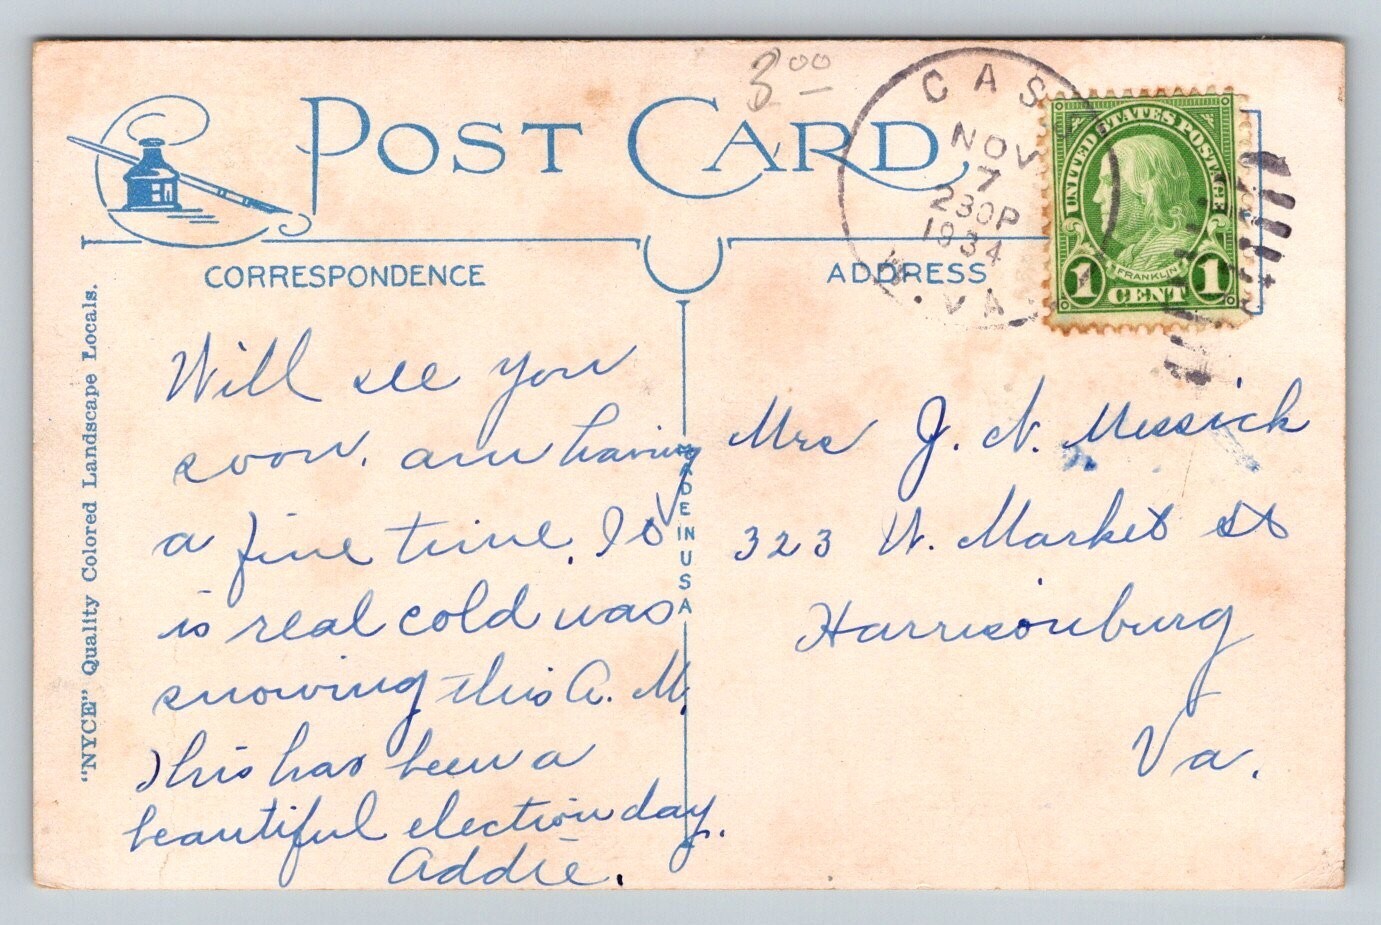 3.00
POST CARD
CAS
NOV
7
230P
1934
W. VA.
UNITED STATES POSTAGE
FRANKLIN
1 CENT 1
CORRESPONDENCE
ADDRESS
"NYCE" Quality Colored Landscape Locals.
MADE IN USA
Will see you
soon. am having
a fine time. It
is real cold was
snowing this A. M.
This has been a
beautiful election day.
Addie.
Mrs J. N. Messick
323 W. Market St
Harrisonburg
Va.